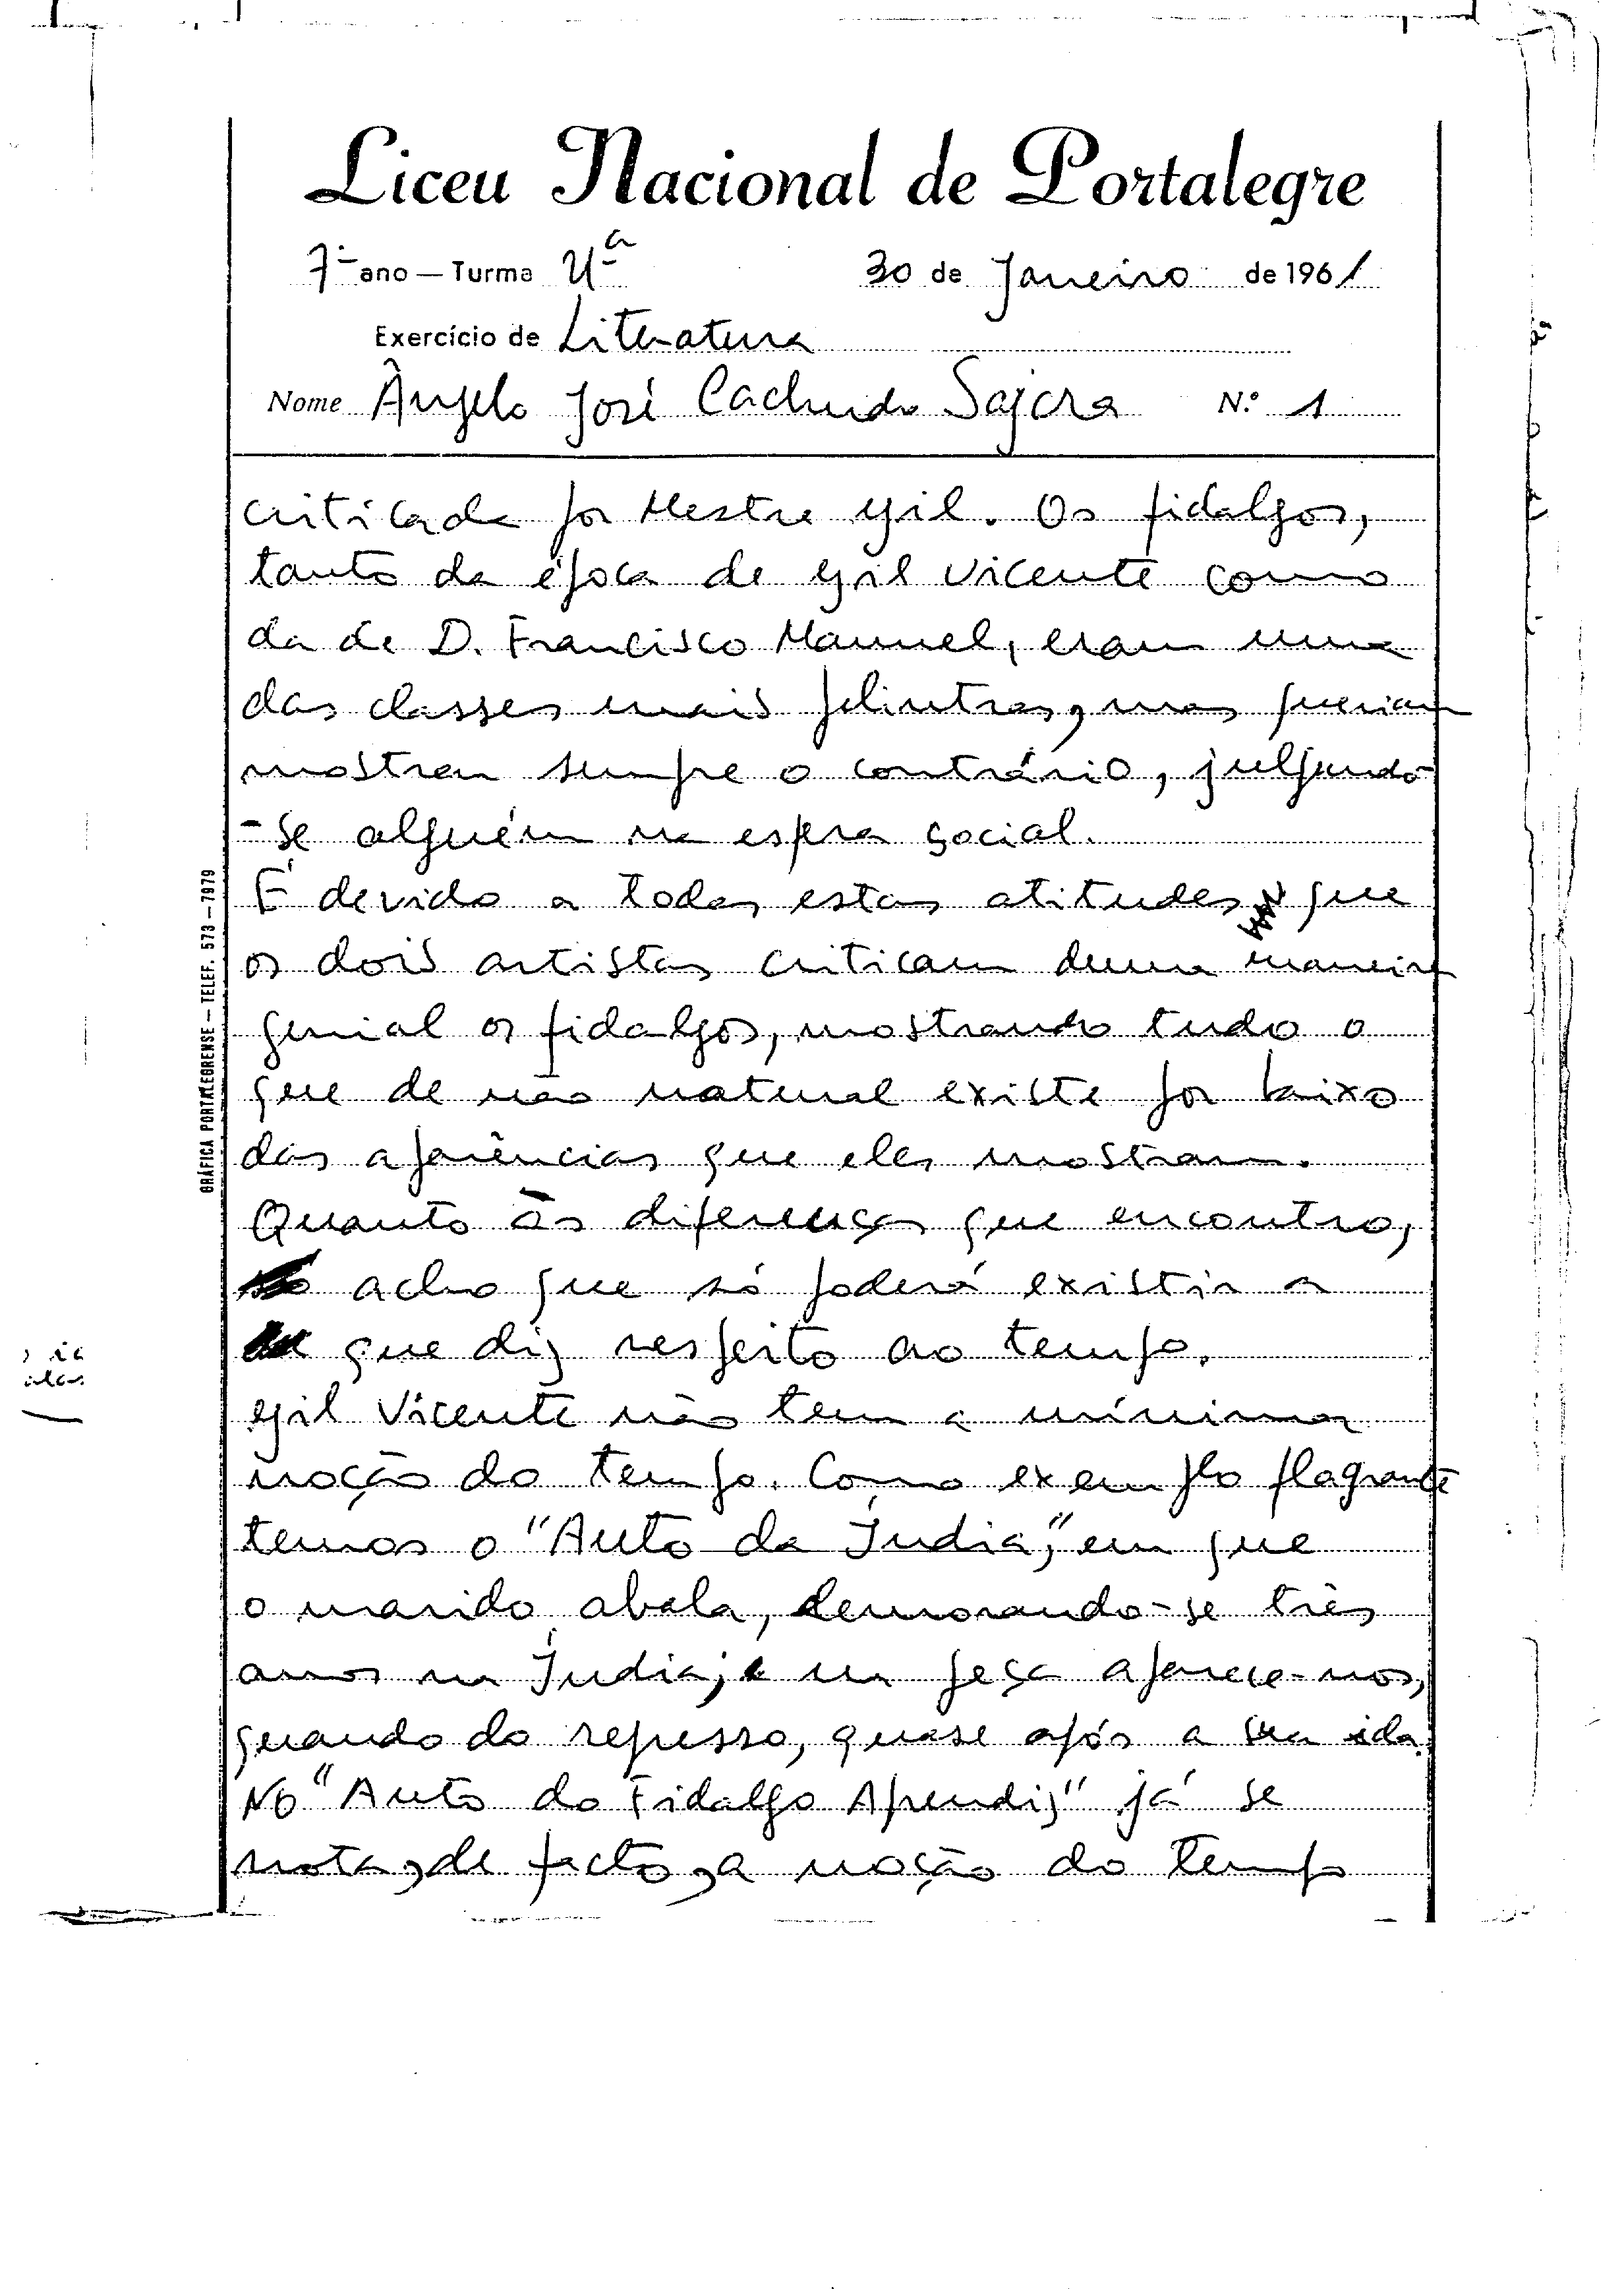 Liceu Nacional de Portalegre
7º ano — Turma Uª
30 de Janeiro de 1961
Exercício de Literatura
Nome Ângelo José Cachudo Sajara N.º 1
criticada por Mestre Gil. Os fidalgos,
tanto da época de Gil Vicente como
da de D. Francisco Manuel, eram uma
das classes mais pelintras, mas queriam
mostrar sempre o contrário, julgando-
-se alguém na esfera social.
É devido a todas estas atitudes que
os dois artistas criticam duma maneira
genial os fidalgos, mostrando tudo o
que de não natural existe por baixo
das aparências que eles mostram.
Quanto às diferenças que encontro,
acho que só poderá existir a
que diz respeito ao tempo.
Gil Vicente não tem a mínima
noção do tempo. Como exemplo flagrante
temos o "Auto da Índia," em que
o marido abala, demorando-se três
anos na Índia, e na peça aparece-nos,
quando do regresso, quase após a sua ida.
No "Auto do Fidalgo Aprendiz" já se
nota, de facto, a noção do tempo
GRÁFICA PORTALEGRENSE — TELEF. 573 — 7979